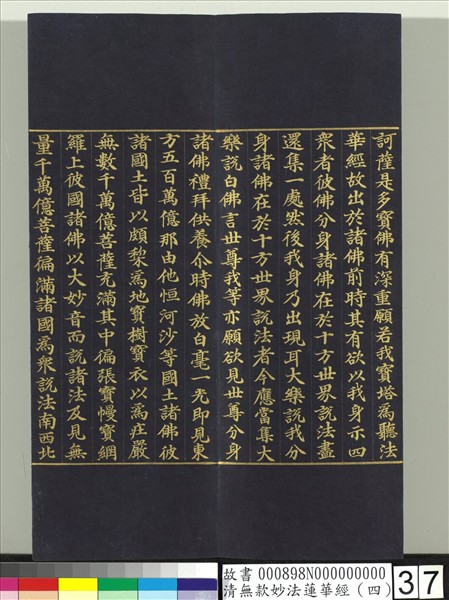 訶薩是多寶佛有深重願若我寶塔為聽法
華經故出於諸佛前時其有欲以我身示四
衆者彼佛分身諸佛在於十方世界說法盡
還集一處然後我身乃出現耳大樂說我分
身諸佛在於十方世界說法者今應當集大
樂說白佛言世尊我等亦願欲見世尊分身
諸佛禮拜供養尒時佛放白毫一光即見東
方五百萬億那由他恒河沙等國土諸佛彼
諸國土皆以頗黎為地寶樹寶衣以為莊嚴
無數千萬億菩薩充滿其中徧張寶幔寶網
羅上彼國諸佛以大妙音而說諸法及見無
量千萬億菩薩徧滿諸國為衆說法南西北
故書 000898N000000000
清無款妙法蓮華經(四)
37